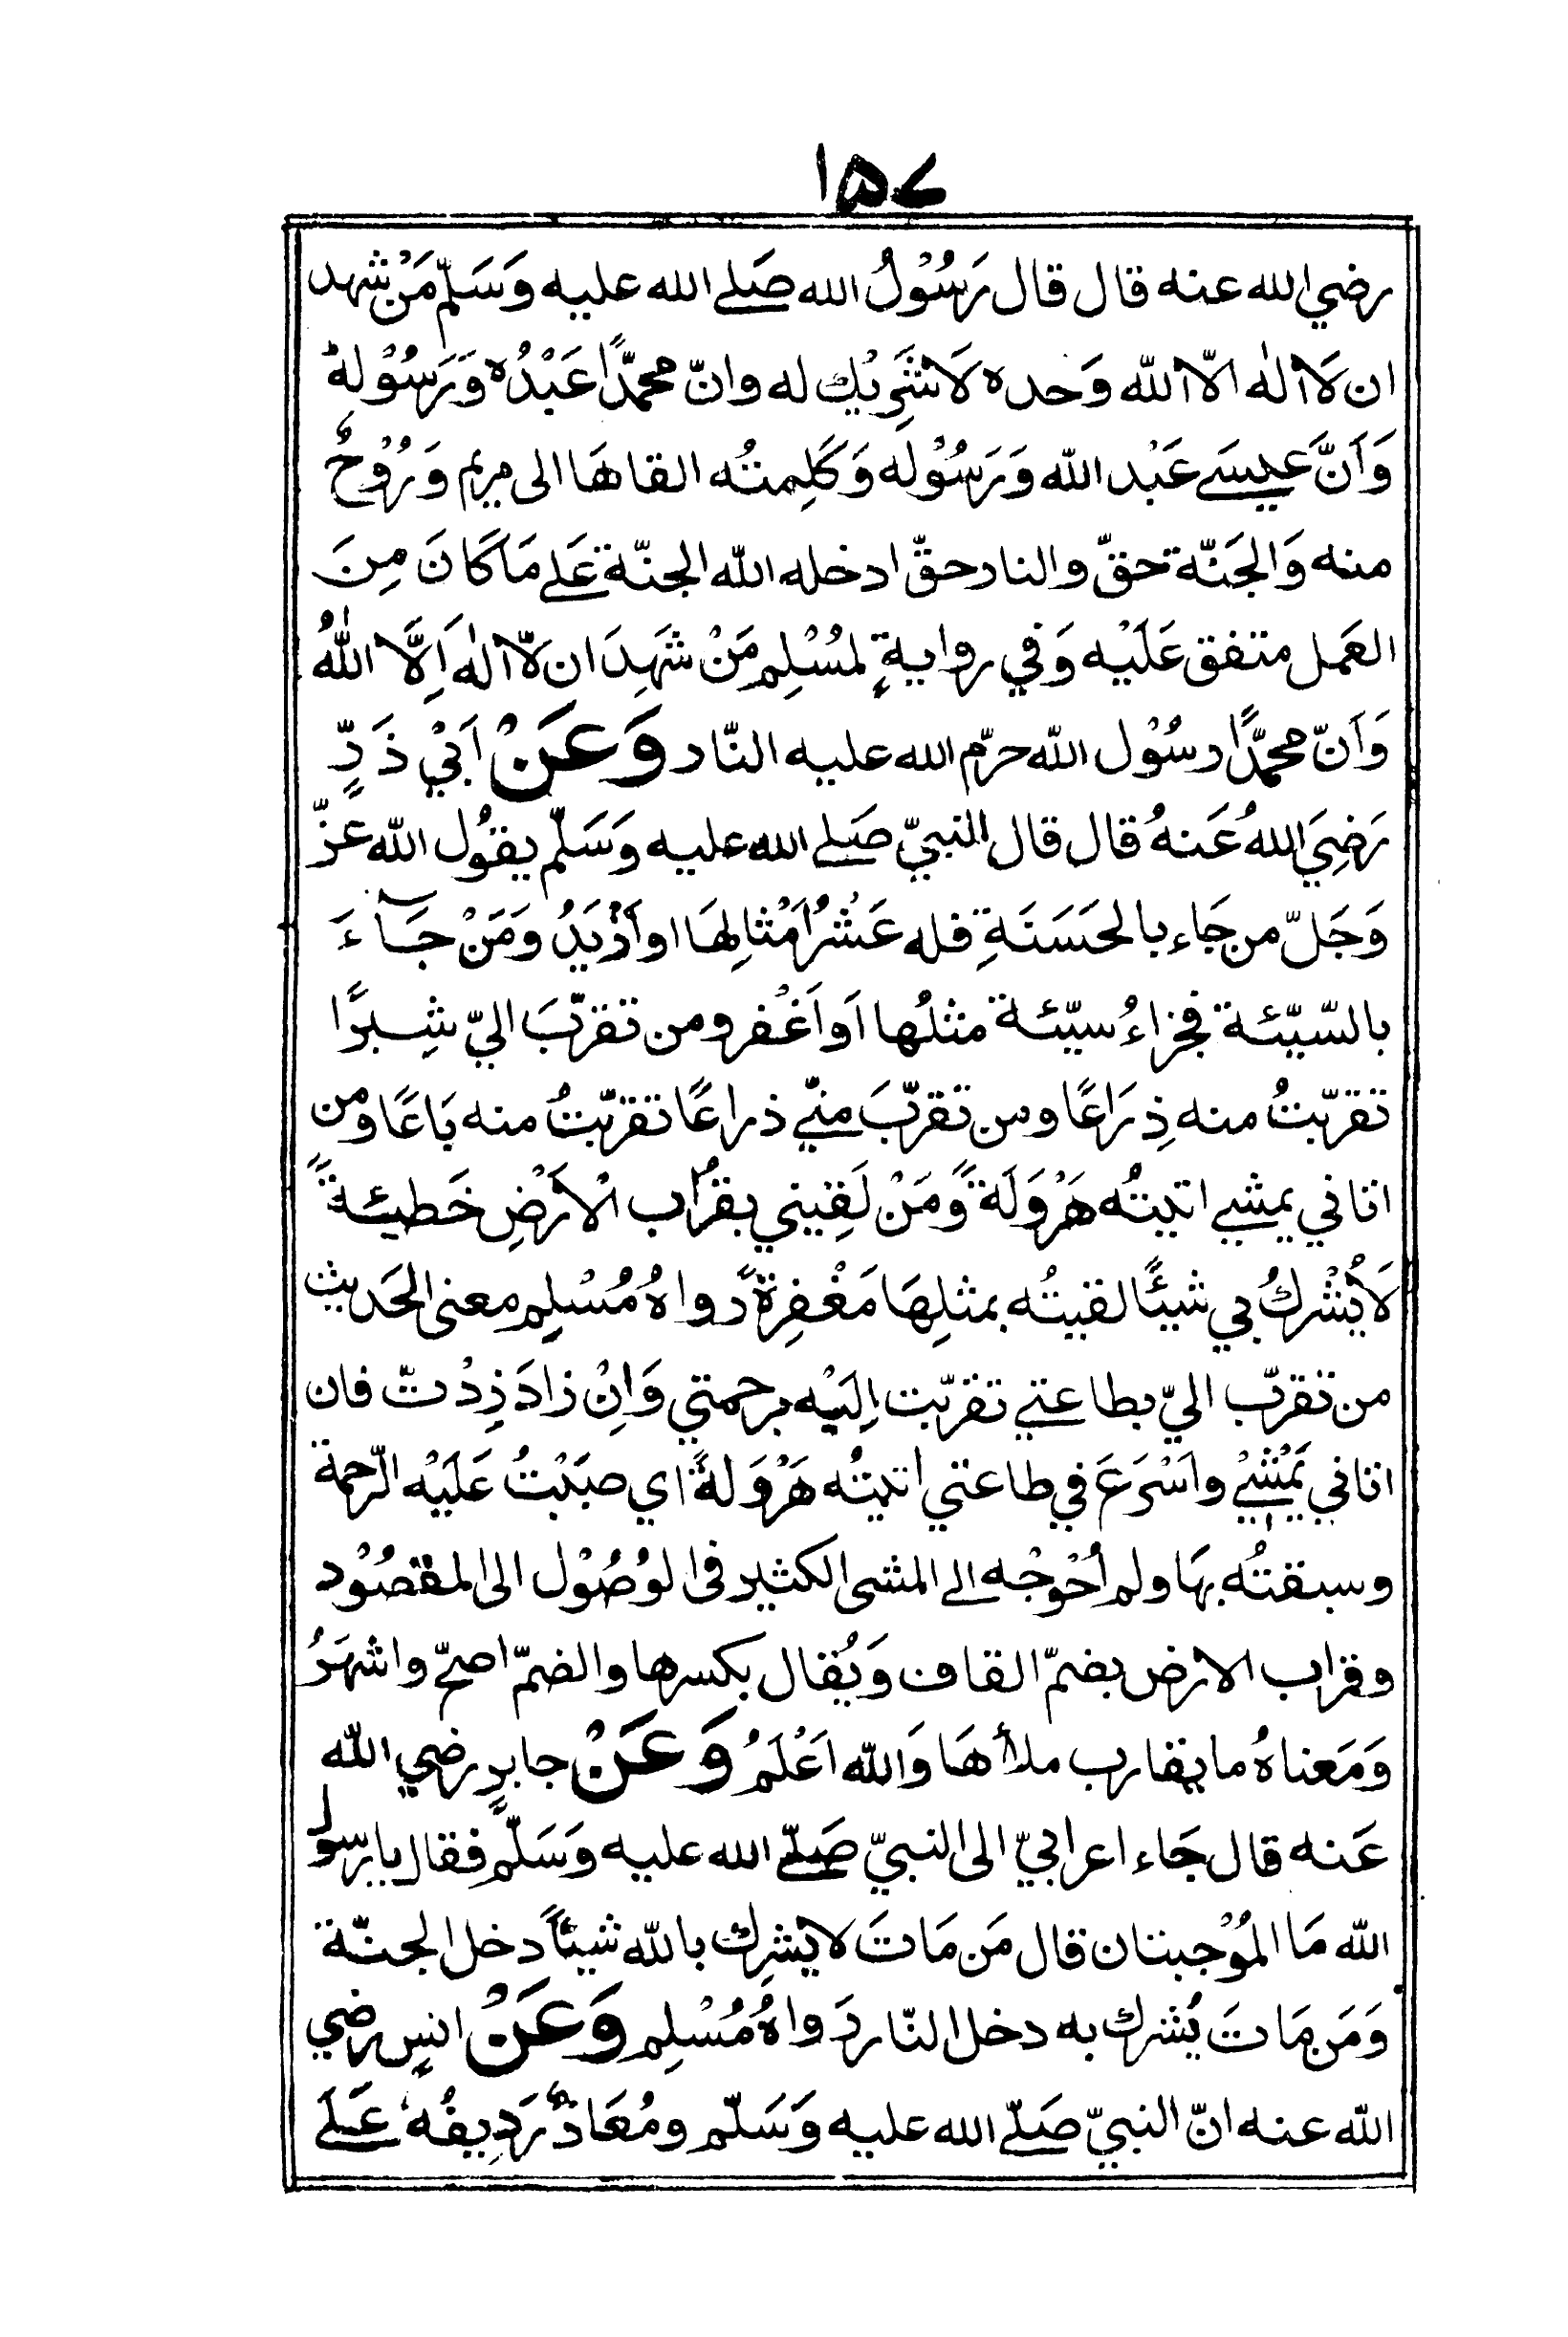 ١٥٧
رضي الله عنه قال قال رَسُوْلُ الله صَلے الله عليه وَسَلّم مَنْ شهد
ان لَا اله الّا الله وَحده لَا شَرِيْك له وانّ محمّدًا عَبْدُه وَرَسُوْله
وَاَنَّ عيسَے عَبْد الله وَرَسُوْله وَكَلِمتُه القاهَا الى مريم وَرُوْحٌ
منه وَالجَنّة حقّ والنار حقّ ادخله الله الجنّة عَلے مَا كَانَ مِنَ
العَمل متفق عَلَيْه وَفي روايةٍ لمُسْلِم مَنْ شَهِدَ ان لّا اله اِلَّا اللهُ
وَاَنّ محمّدًا رسُوْل الله حرّم الله عليه النّار وَعَنْ اَبيْ ذَرٍّ
رَضِيَ اللهُ عَنهُ قال قال النبيّ صَلے الله عليه وَسَلّم يقوُل الله عَزّ
وَجَلّ من جَاء بالحَسَنَةِ فله عَشْرُ اَمْثالِهَا او اَزْيَدُ وَمَنْ جَآءَ
بالسّيّئة فجزاءُ سيّئة مثلُها اَو اَغْفر ومن تقرّبَ اليّ شِبرًا
تقرّبتُ منه ذِرَاعًا ومن تقرّبَ منّے ذراعًا تقرّبتُ منه بَاعًا ومن
اتاني يمشے اتيتُه هَرْوَلَةً وَمَنْ لَقِيني بقُرَاب الْاَرْضِ خَطيئةً
لَا يُشْركُ بي شيئًا لقيتُه بمثلِهَا مَغْفِرةً رواهُ مُسْلِم معنى الحَديث
من تقرّب اليّ بطاعتے تقرّبت اِلَيْه برحمتي وَاِنْ زادَ زِدْتّ فان
اتاني يَمْشِےْ واَسْرَعَ في طاعتي اتيتُه هَرْوَلةً اي صبَبْتُ عَلَيْه الرّحمة
وسبقتُه بهَا ولم اُحْوْجْه الے المشى الكثير فى الوُصُوْل الى المقصُوْد
وقراب الارض بضمّ القاف وَيُقال بكسرها والضمّ اصحّ واشهَرُ
وَمَعناهُ ما يقارب ملأهَا وَالله اَعْلَمُ وَعَنْ جابرٍ رضي الله
عَنه قال جَاء اعرابيّ الى النبيّ صَلّے الله عليه وَسَلّم فقال يا رسول
الله مَا المُوْجبتان قال مَن مَاتَ لا يشرِك بالله شيئًا دخل الجنّة
وَمَن مَاتَ يُشرك به دخل النّار رَواهُ مُسْلِم وَعَنْ انسٍ رضي
الله عنه انّ النبيّ صَلّے الله عليه وَسَلّم ومُعَاذٌ رَدِيفُهُ عَلَے